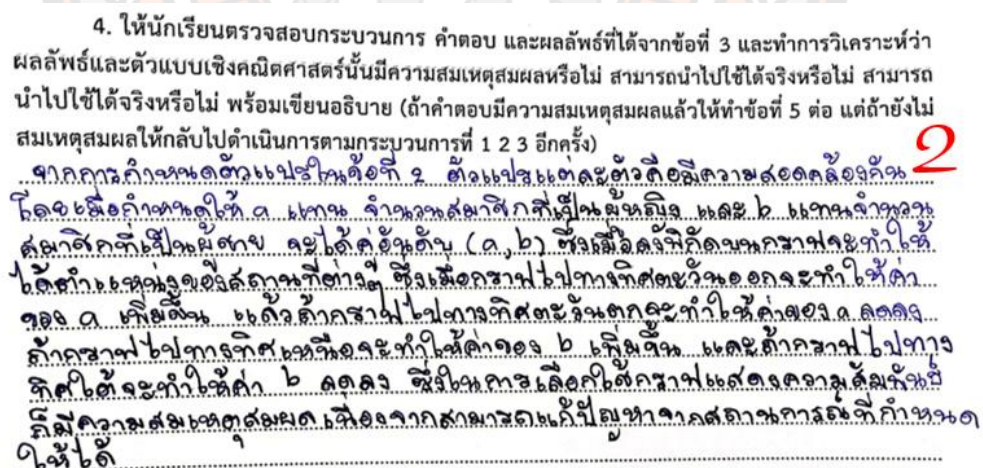 4. ให้นักเรียนตรวจสอบกระบวนการ คำตอบ และผลลัพธ์ที่ได้จากข้อที่ 3 และทำการวิเคราะห์ว่า
ผลลัพธ์และตัวแบบเชิงคณิตศาสตร์นั้นมีความสมเหตุสมผลหรือไม่ สามารถนำไปใช้ได้จริงหรือไม่ สามารถ
นำไปใช้ได้จริงหรือไม่ พร้อมเขียนอธิบาย (ถ้าคำตอบมีความสมเหตุสมผลแล้วให้ทำข้อที่ 5 ต่อ แต่ถ้ายังไม่
สมเหตุสมผลให้กลับไปดำเนินการตามกระบวนการที่ 1 2 3 อีกครั้ง)
2
จากการกำหนดตัวแปรในข้อที่ 2 ตัวแปรแต่ละตัวคือมีความสอดคล้องกัน
โดยเมื่อกำหนดให้ a แทน จำนวนสมาชิกที่เป็นผู้หญิง และ b แทนจำนวน
สมาชิกที่เป็นผู้ชาย จะได้คู่อันดับ (a,b) ซึ่งเมื่อลงพิกัดบนกราฟจะทำให้
ได้ตำแหน่งของสถานที่ต่างๆ ซึ่งเมื่อกราฟไปทางทิศตะวันออกจะทำให้ค่า
ของ a เพิ่มขึ้น แล้วถ้ากราฟไปทางทิศตะวันตกจะทำให้ค่าของ a ลดลง
ถ้ากราฟไปทางทิศเหนือจะทำให้ค่าของ b เพิ่มขึ้น และถ้ากราฟไปทาง
ทิศใต้จะทำให้ค่า b ลดลง ซึ่งในการเลือกใช้กราฟแสดงความสัมพันธ์
ก็มีความสมเหตุสมผล เนื่องจากสามารถแก้ปัญหาจากสถานการณ์ที่กำหนด
ให้ได้